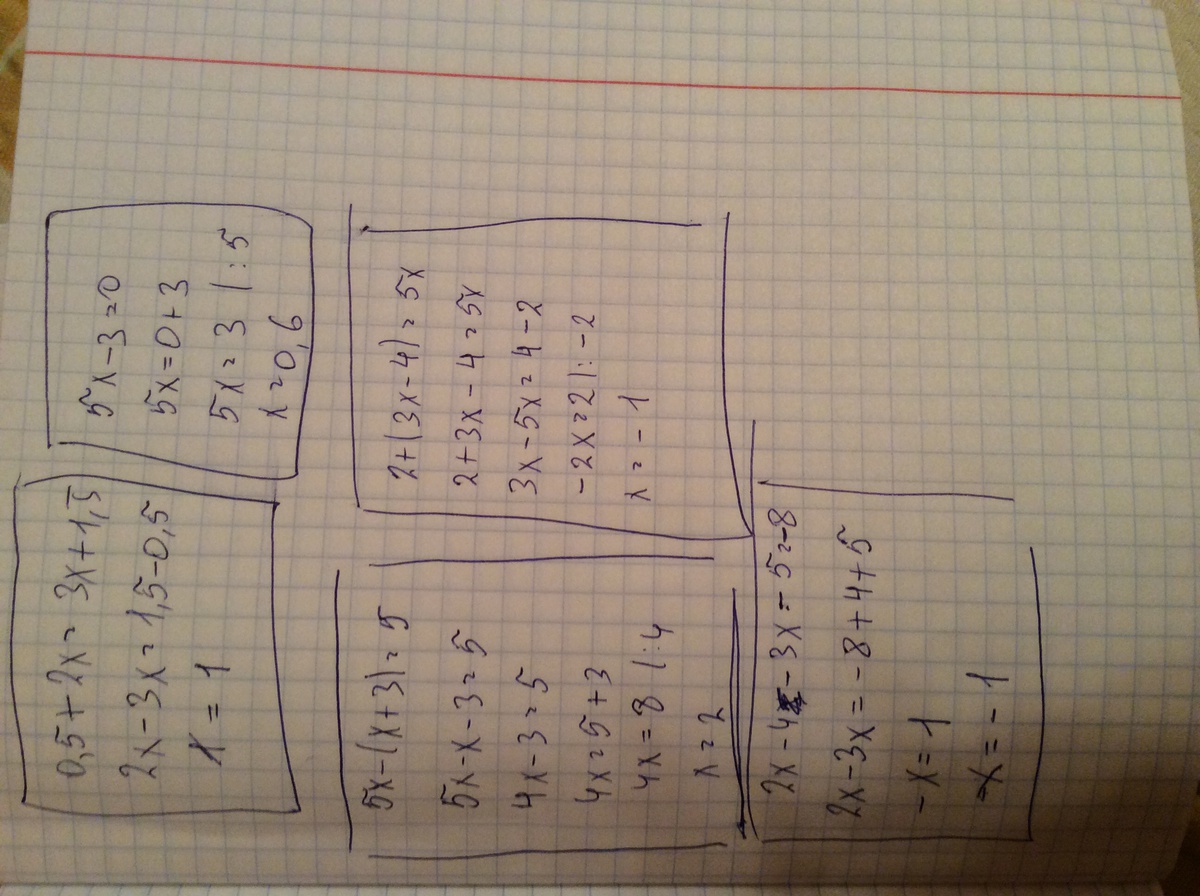 0,5+2x=3x+1,5
2x-3x=1,5-0,5
x=1
5x-3=0
5x=0+3
5x=3 |:5
x=0,6
5x-(x+3)=5
5x-x-3=5
4x-3=5
4x=5+3
4x=8 |:4
x=2
2+(3x-4)=5x
2+3x-4=5x
3x-5x=4-2
-2x=2|:-2
x=-1
2x-4-3x-5=-8
2x-3x=-8+4+5
-x=1
x=-1